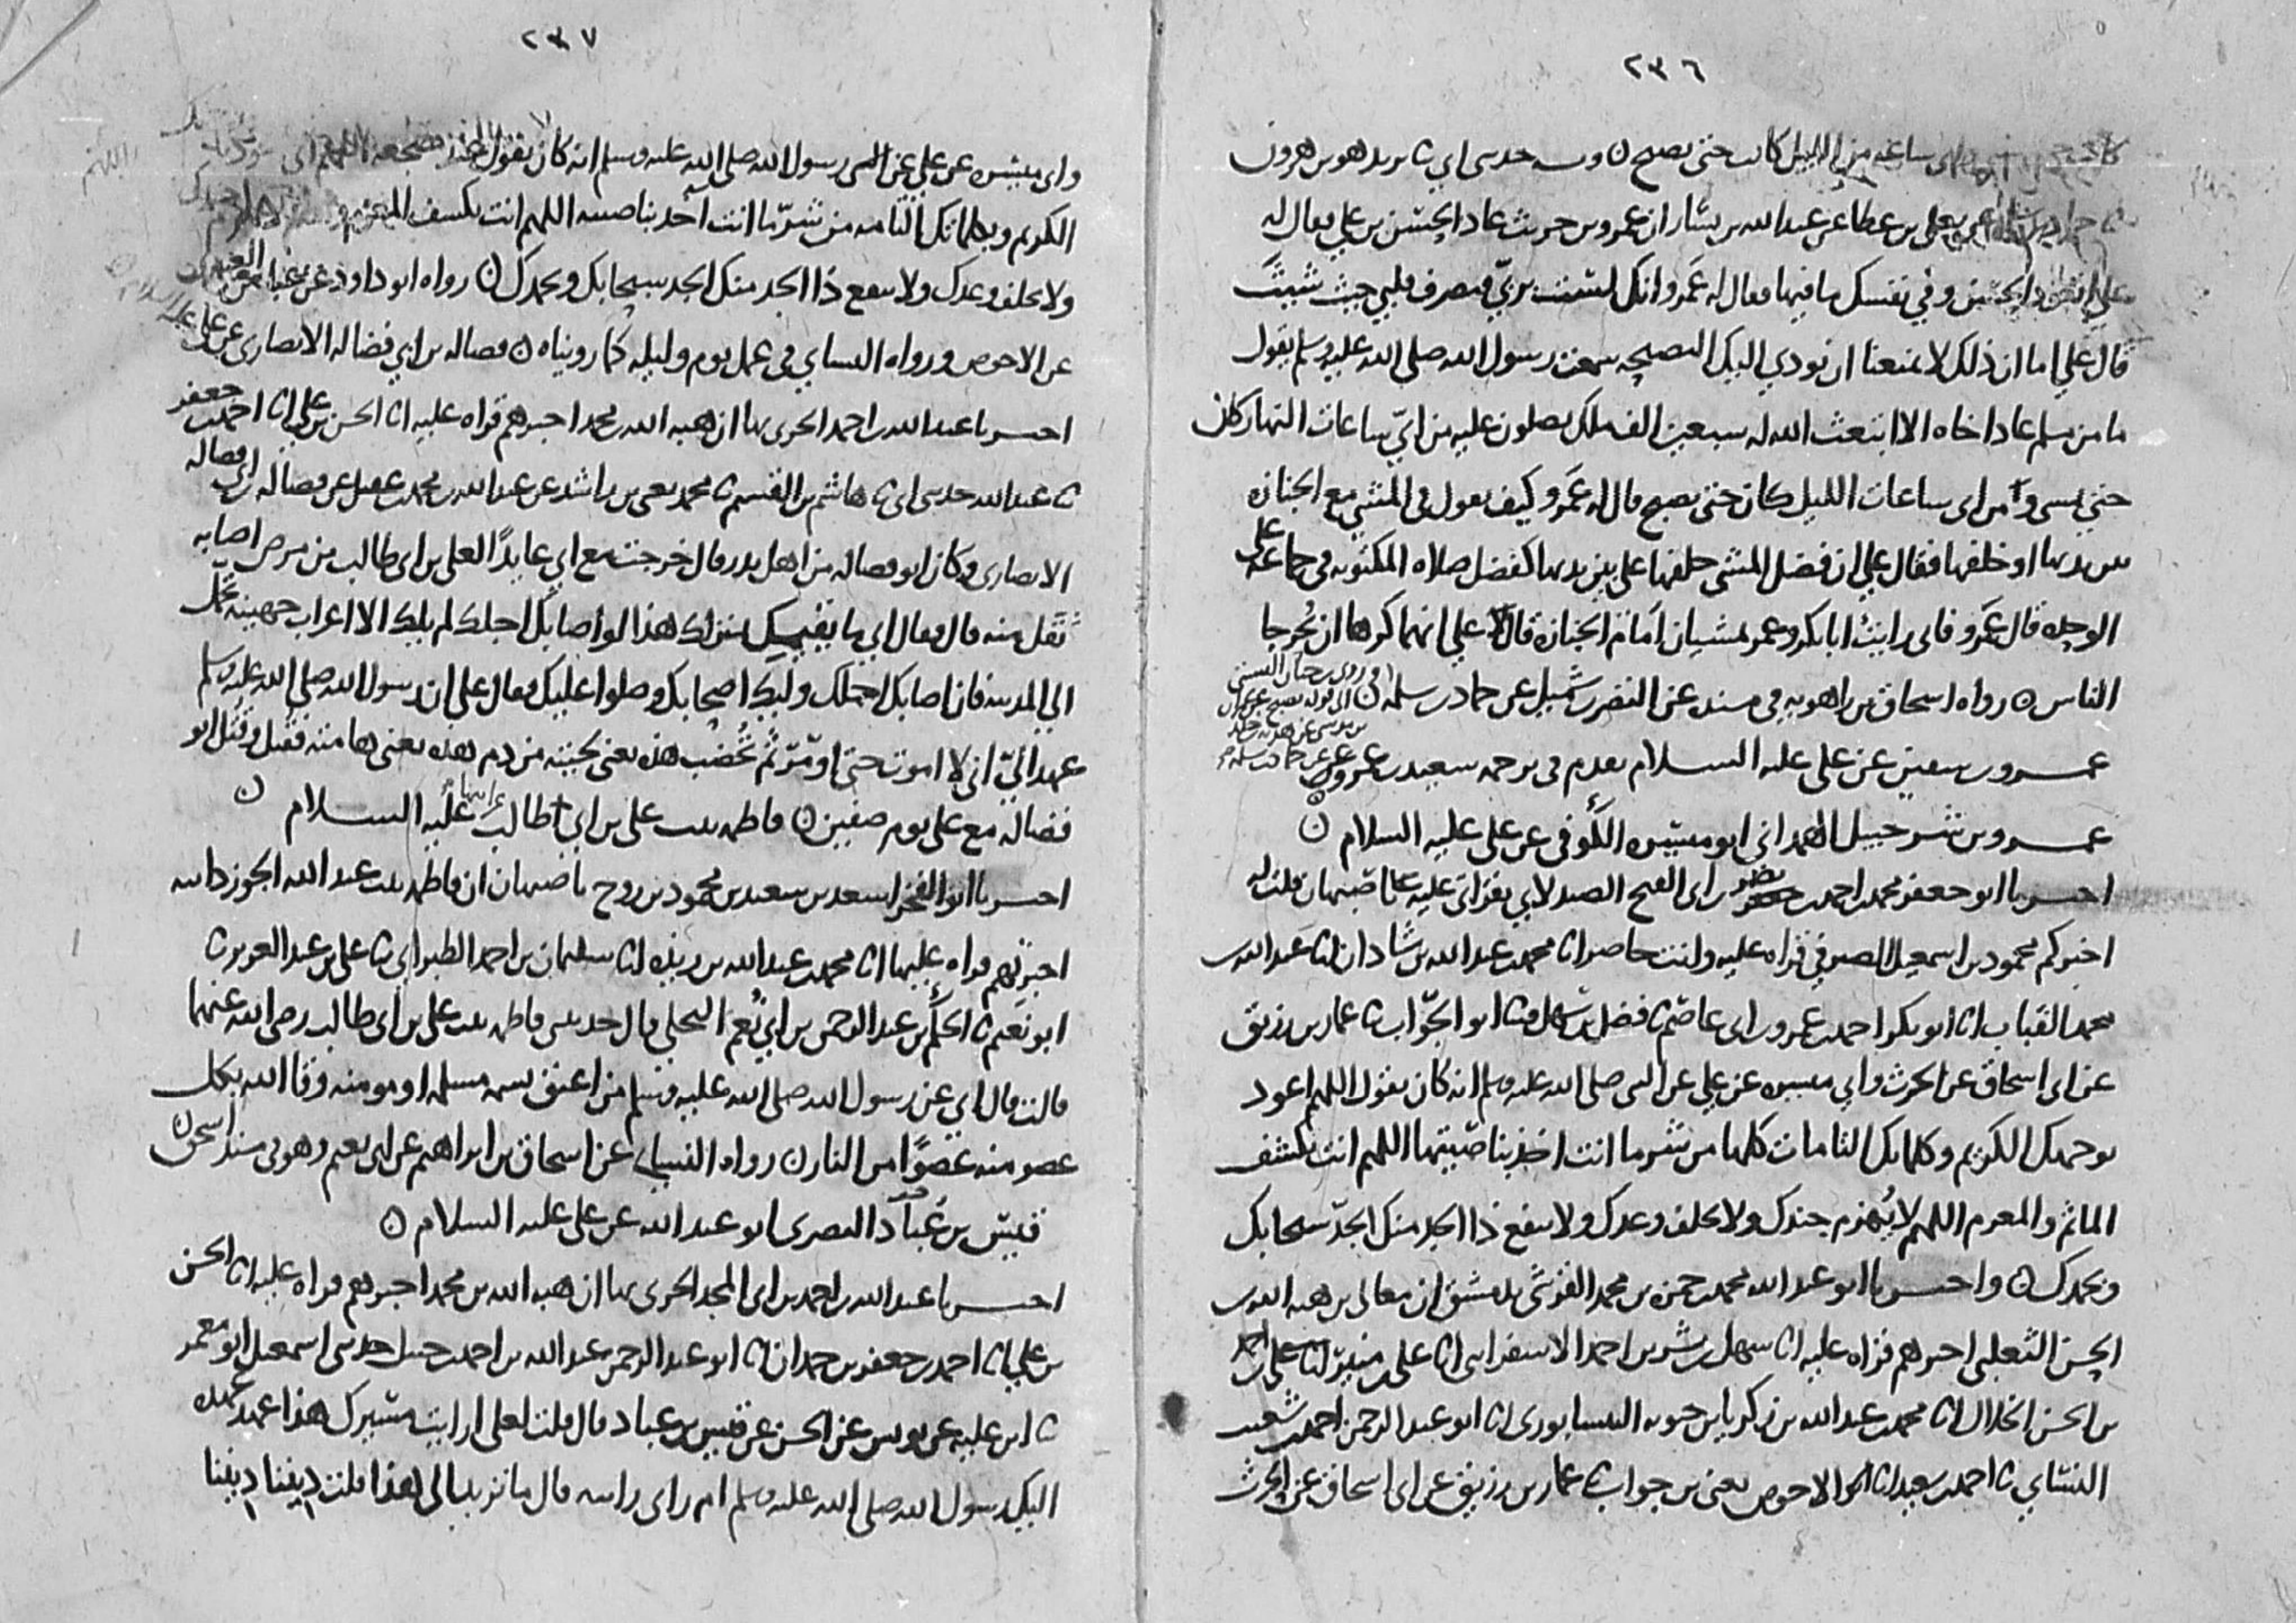 ٢٣٦
ساعه من الليل كانت حتى يصبح ن وبه حدثنى ابي ثنا يزيد هو بن هرون
يعلى بن عطا عن عبد الله بن يشار ان عمرو بن حريث عاد الحسن بن علي فقال له
علي الحسن وفي نفسك ما فيها فقال له عمرو انك لست بربي فتصرف قلبي حيث شيت
قال علي اما ان ذلك لا يمنعنا ان نودي اليك النصيحه سمعت رسول الله صلى الله عليه وسلم يقول
ما من مسلم عاد اخاه الا ابتعث الله له سبعين الف ملك يصلون عليه من اي ساعات النهار كان
حتى يمسى ومن اى ساعات الليل كان حتى يصبح قال له عمرو كيف تقول في المشي مع الجنازه
بين يديها او خلفها فقال علي ان فضل المشى خلفها على بين يديها كفضل صلاه المكتوبه في جماعه على
الوحده قال عمرو فانى رايت ابا بكر وعمر يمشيان امام الجنازه قال علي انهما كرها ان يحرجا
الناس ن رواه اسحاق بن راهويه في مسنده عن النضر بن شميل عن حماد بن سلمه ن
عمرو بن سفين عن على عليه السلام تقدم في ترجمه سعيد بن عمرو عن
عمرو بن شرحبيل الهمدانى ابو ميسره الكوفى عن على عليه السلام ن
اخبرنا ابو جعفر محمد بن احمد بن نصر بن ابى الفتح الصيدلاني بقراتى عليه باصبهان قلت له
اخبركم محمود بن اسمعيل الصيرفي قراه عليه وانت حاضر انا محمد بن عبد الله بن شاذان انا عبد الله بن
محمد القباب انا ابو بكر احمد بن عمرو بن ابى عاصم ثنا فضل بن سهل ثنا ابو الجواب ثنا عمار بن رزيق
عن ابى اسحاق عن الحرث وابي ميسره عن علي عن النبى صلى الله عليه وسلم انه كان يقول اللهم اعوذ
بوجهك الكريم وكلماتك التامات كلها من شر ما انت اخذ بناصيتها اللهم انت تكشف
الماثم والمغرم اللهم لا يهزم جندك ولا تخلف وعدك ولا ينفع ذا الجد منك الجد سبحانك
وبحمدك ن واخبرنا ابو عبد الله محمد بن حمزه بن محمد القرشي بدمشق ان معالى بن هبه الله بن
الحسن الثعلبى اخبرهم قراه عليه انا سهل بن بشر بن احمد الاسفراينى انا على بن منير انا على بن احمد
بن الحسن الخلال انا محمد بن عبد الله بن زكريا بن حيويه النيسابورى انا ابو عبد الرحمن احمد بن شعيب
النسائي ثنا احمد بن سعيد ثنا الاحوص يعنى بن جواب ثنا عمار بن رزيق عن ابى اسحاق عن الحرث
٢٣٧
وابى ميسره عن علي عن النبى رسول الله صلى الله عليه وسلم انه كان يقول عند مضجعه اللهم انى
الكريم وبكلماتك التامه من شر ما انت اخذ بناصيته اللهم انت تكشف المغرم
ولا تخلف وعدك ولا ينفع ذا الجد منك الجد سبحانك وبحمدك ن رواه ابو داود عن عباس العنبرى
عن الاحوص ورواه النساي في عمل يوم وليله كما رويناه ن فضاله بن ابي فضاله الانصارى عن علي عليه السلام
اخبرنا عبد الله بن احمد الحربى بها ان هبه الله بن محمد اخبرهم قراه عليه انا الحسن بن علي انا احمد بن جعفر
ثنا عبد الله حدثنى ابى ثنا هاشم بن القسم ثنا محمد يعنى بن راشد عن عبد الله بن محمد بن عقيل عن فضاله بن ابى فضاله
الانصارى وكان ابو فضاله من اهل بدر قال خرجت مع ابي عايدا لعلى بن ابى طالب من مرض اصابه
ثقل منه قال فقال ابي ما يقيمك بمنزلك هذا لو اصابك اجلك لم يلك الا اعراب جهينه تحمل
الى المدينه فان اصابك اجلك وليك اصحابك وصلوا عليك فقال على ان رسول الله صلى الله عليه وسلم
عهد الي انى لا اموت حتى اومر ثم تخضب هذه يعنى لحيته من دم هذه يعنى هامته فقتل وقتل ابو
فضاله مع على يوم صفين ن فاطمه بنت على بن ابي طالب عن ابيها عليه السلام ن
اخبرنا ابو الفخر اسعد بن سعيد بن محمود بن روح باصبهان ان فاطمه بنت عبد الله الجوزدانيه
اخبرتهم قراه عليها انا محمد بن عبد الله بن ريذه انا سليمان بن احمد الطبرانى ثنا على بن عبد العزيز ثنا
ابو نعيم ثنا الحكم بن عبد الرحمن بن ابي نعم البجلى قال حدثتنى فاطمه بنت على بن ابى طالب رضى الله عنهما
قالت قال ابى عن رسول الله صلى الله عليه وسلم من اعتق نسمه مسلمه او مومنه وقا الله بكل
عضو منه عضوا من النار ن رواه النسائى عن اسحاق بن ابراهيم عن ابى نعيم وهو في مسند اسحق ن
قيس بن عباد البصرى ابو عبد الله عن على عليه السلام ن
اخبرنا عبد الله بن احمد بن ابى المجد الحربى بها ان هبه الله بن محمد اخبرهم قراه عليه انا الحسن
بن علي انا احمد بن جعفر بن حمدان ثنا ابو عبد الرحمن عبد الله بن احمد بن حنبل حدثنى اسمعيل ابو معمر
ثنا ابن عليه عن يونس عن الحسن عن قيس بن عباد قال قلت لعلى ارايت مسيرك هذا عهد عهده
اليك رسول الله صلى الله عليه وسلم ام راى رايته قال ما تريد الى هذا قلت ديننا ديننا